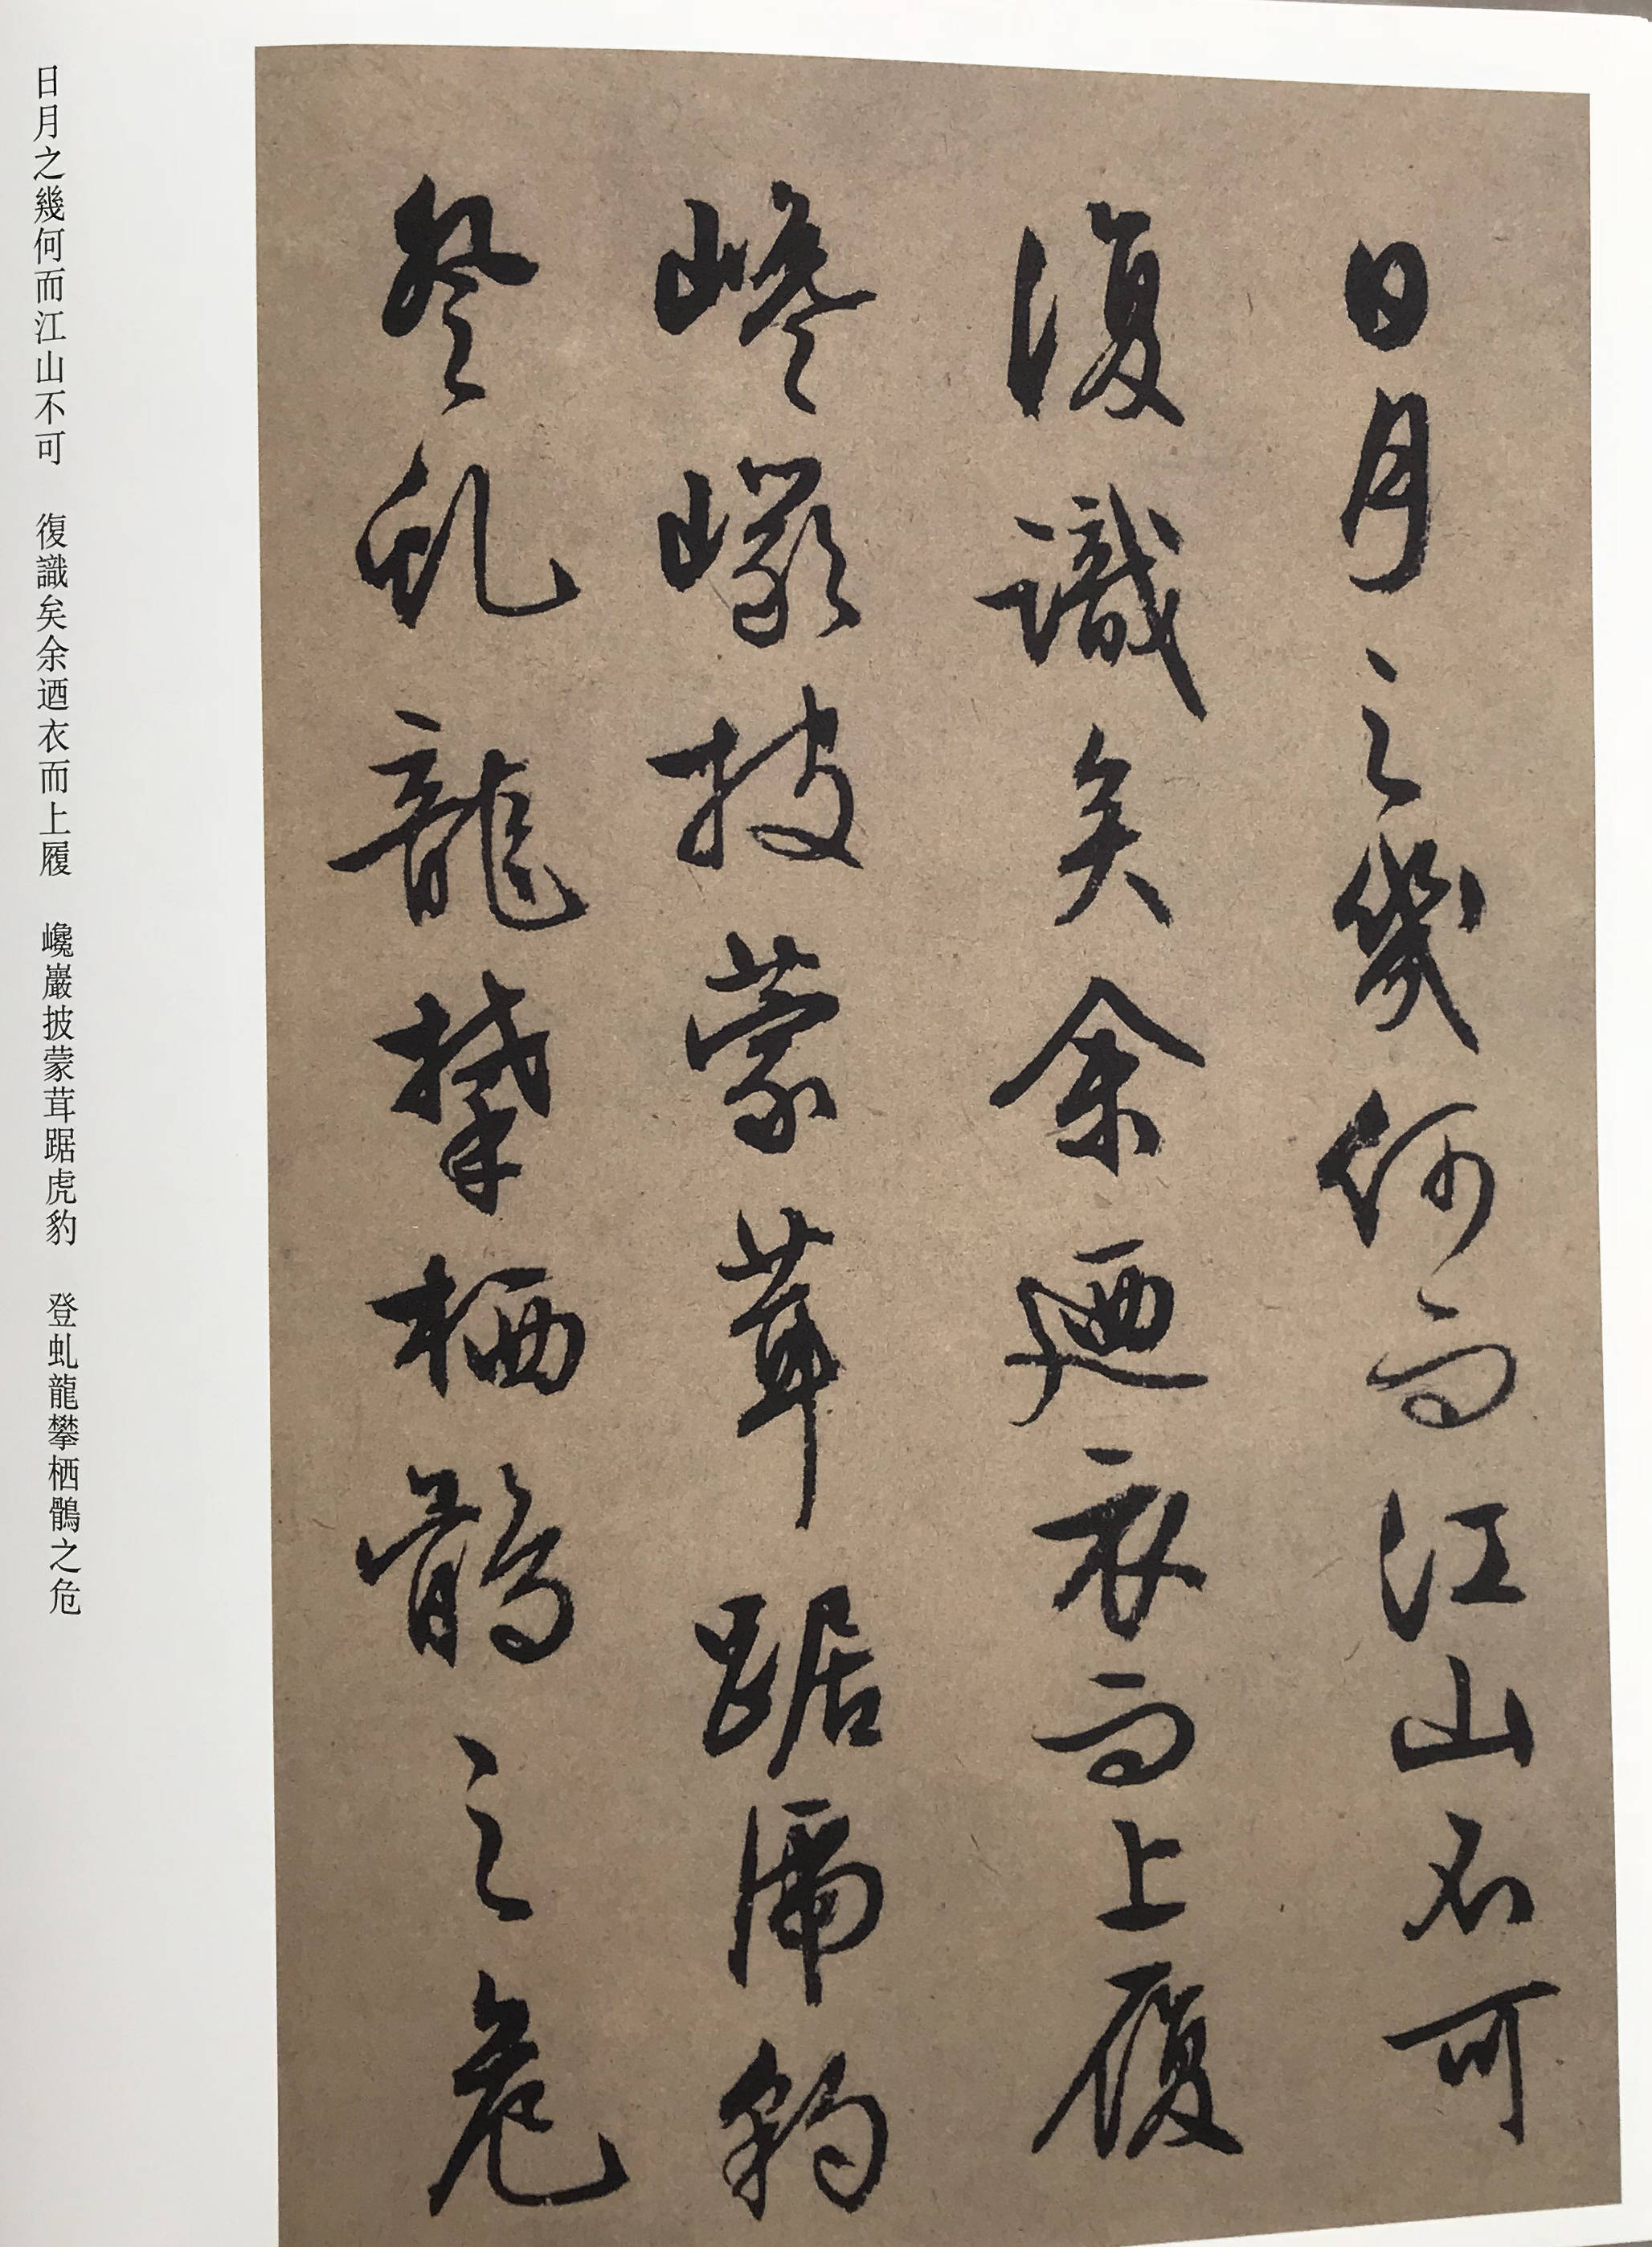 日月之幾何而江山不可
復識矣余迺衣而上履
巉巖披蒙茸踞虎豹
登虬龍攀栖鶻之危
日月之幾何而江山不可　復識矣余迺衣而上履　巉巖披蒙茸踞虎豹　登虬龍攀栖鶻之危